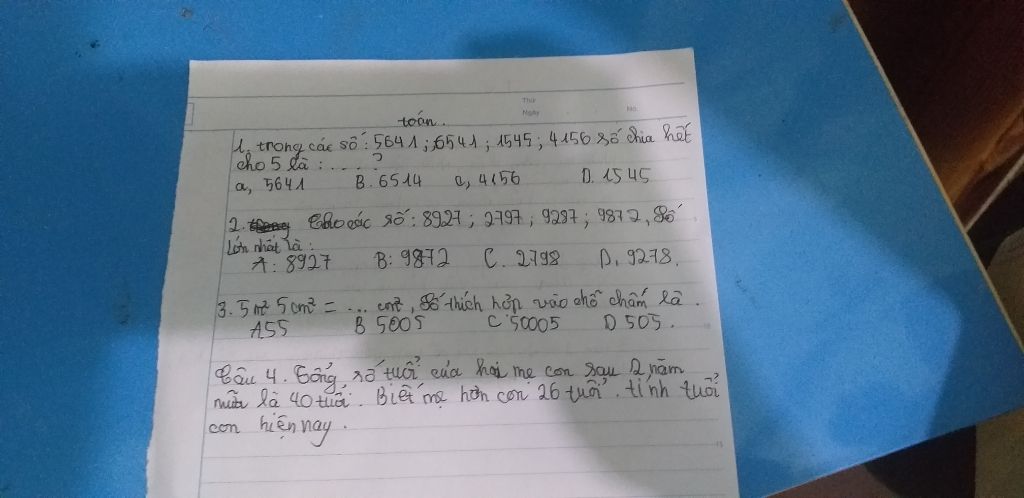 Thứ
Ngày
No.
toán.
1. trong các số : 5641 ; 6541 ; 1545 ; 4156 số chia hết
cho 5 là : . . . . . ?
a, 5641 B. 6514 c, 4156 D. 1545
2. Cho các số : 8927 ; 2797 ; 9287 ; 9872, Số
lớn nhất là :
A : 8927 B: 9872 C. 2798 D, 9278.
3. 5m² 5cm² = ... cm², Số thích hợp vào chỗ chấm là .
A55 B 5005 C 50005 D 505.
Câu 4. Tổng số tuổi của hai mẹ con sau 2 năm
nữa là 40 tuổi. Biết mẹ hơn con 26 tuổi. tính tuổi
con hiện nay.